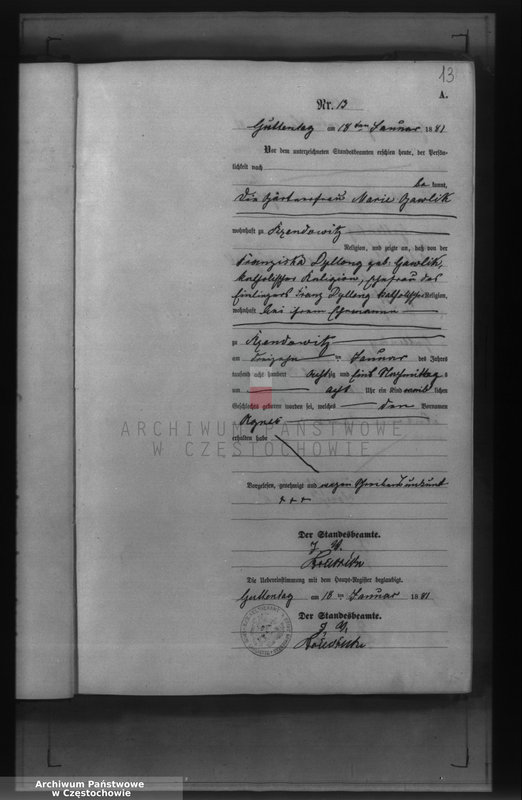 13
A.
Nr. 13
Guttentag am 18ten Januar 1881
Vor dem unterzeichneten Standesbeamten erschien heute, der Persön-
lichkeit nach
be kannt,
die Gärtnerfrau Marie Gawlik
wohnhaft zu Rzendowitz
Religion, und zeigte an, daß von der
Franziska Dyllong geb. Gawlik,
katholischer Religion, Ehefrau des
Einliegers Franz Dyllong katholischer Religion,
wohnhaft bei ihrem Ehemanne
zu Rzendowitz
am dreizehn ten Januar des Jahres
tausend acht hundert achtzig und eins Nachmittag s
um acht Uhr ein Kind weib lichen
Geschlechts geboren worden sei, welches den Vornamen
Agnes
erhalten habe
ARCHIWUM PAŃSTWOWE
W CZĘSTOCHOWIE
Vorgelesen, genehmigt und wegen Schreibensunkunde
+++
Der Standesbeamte.
Die Uebereinstimmung mit dem Haupt-Register beglaubigt.
Guttentag am 18 ten Januar 1881
Der Standesbeamte.
Archiwum Państwowe
w Częstochowie